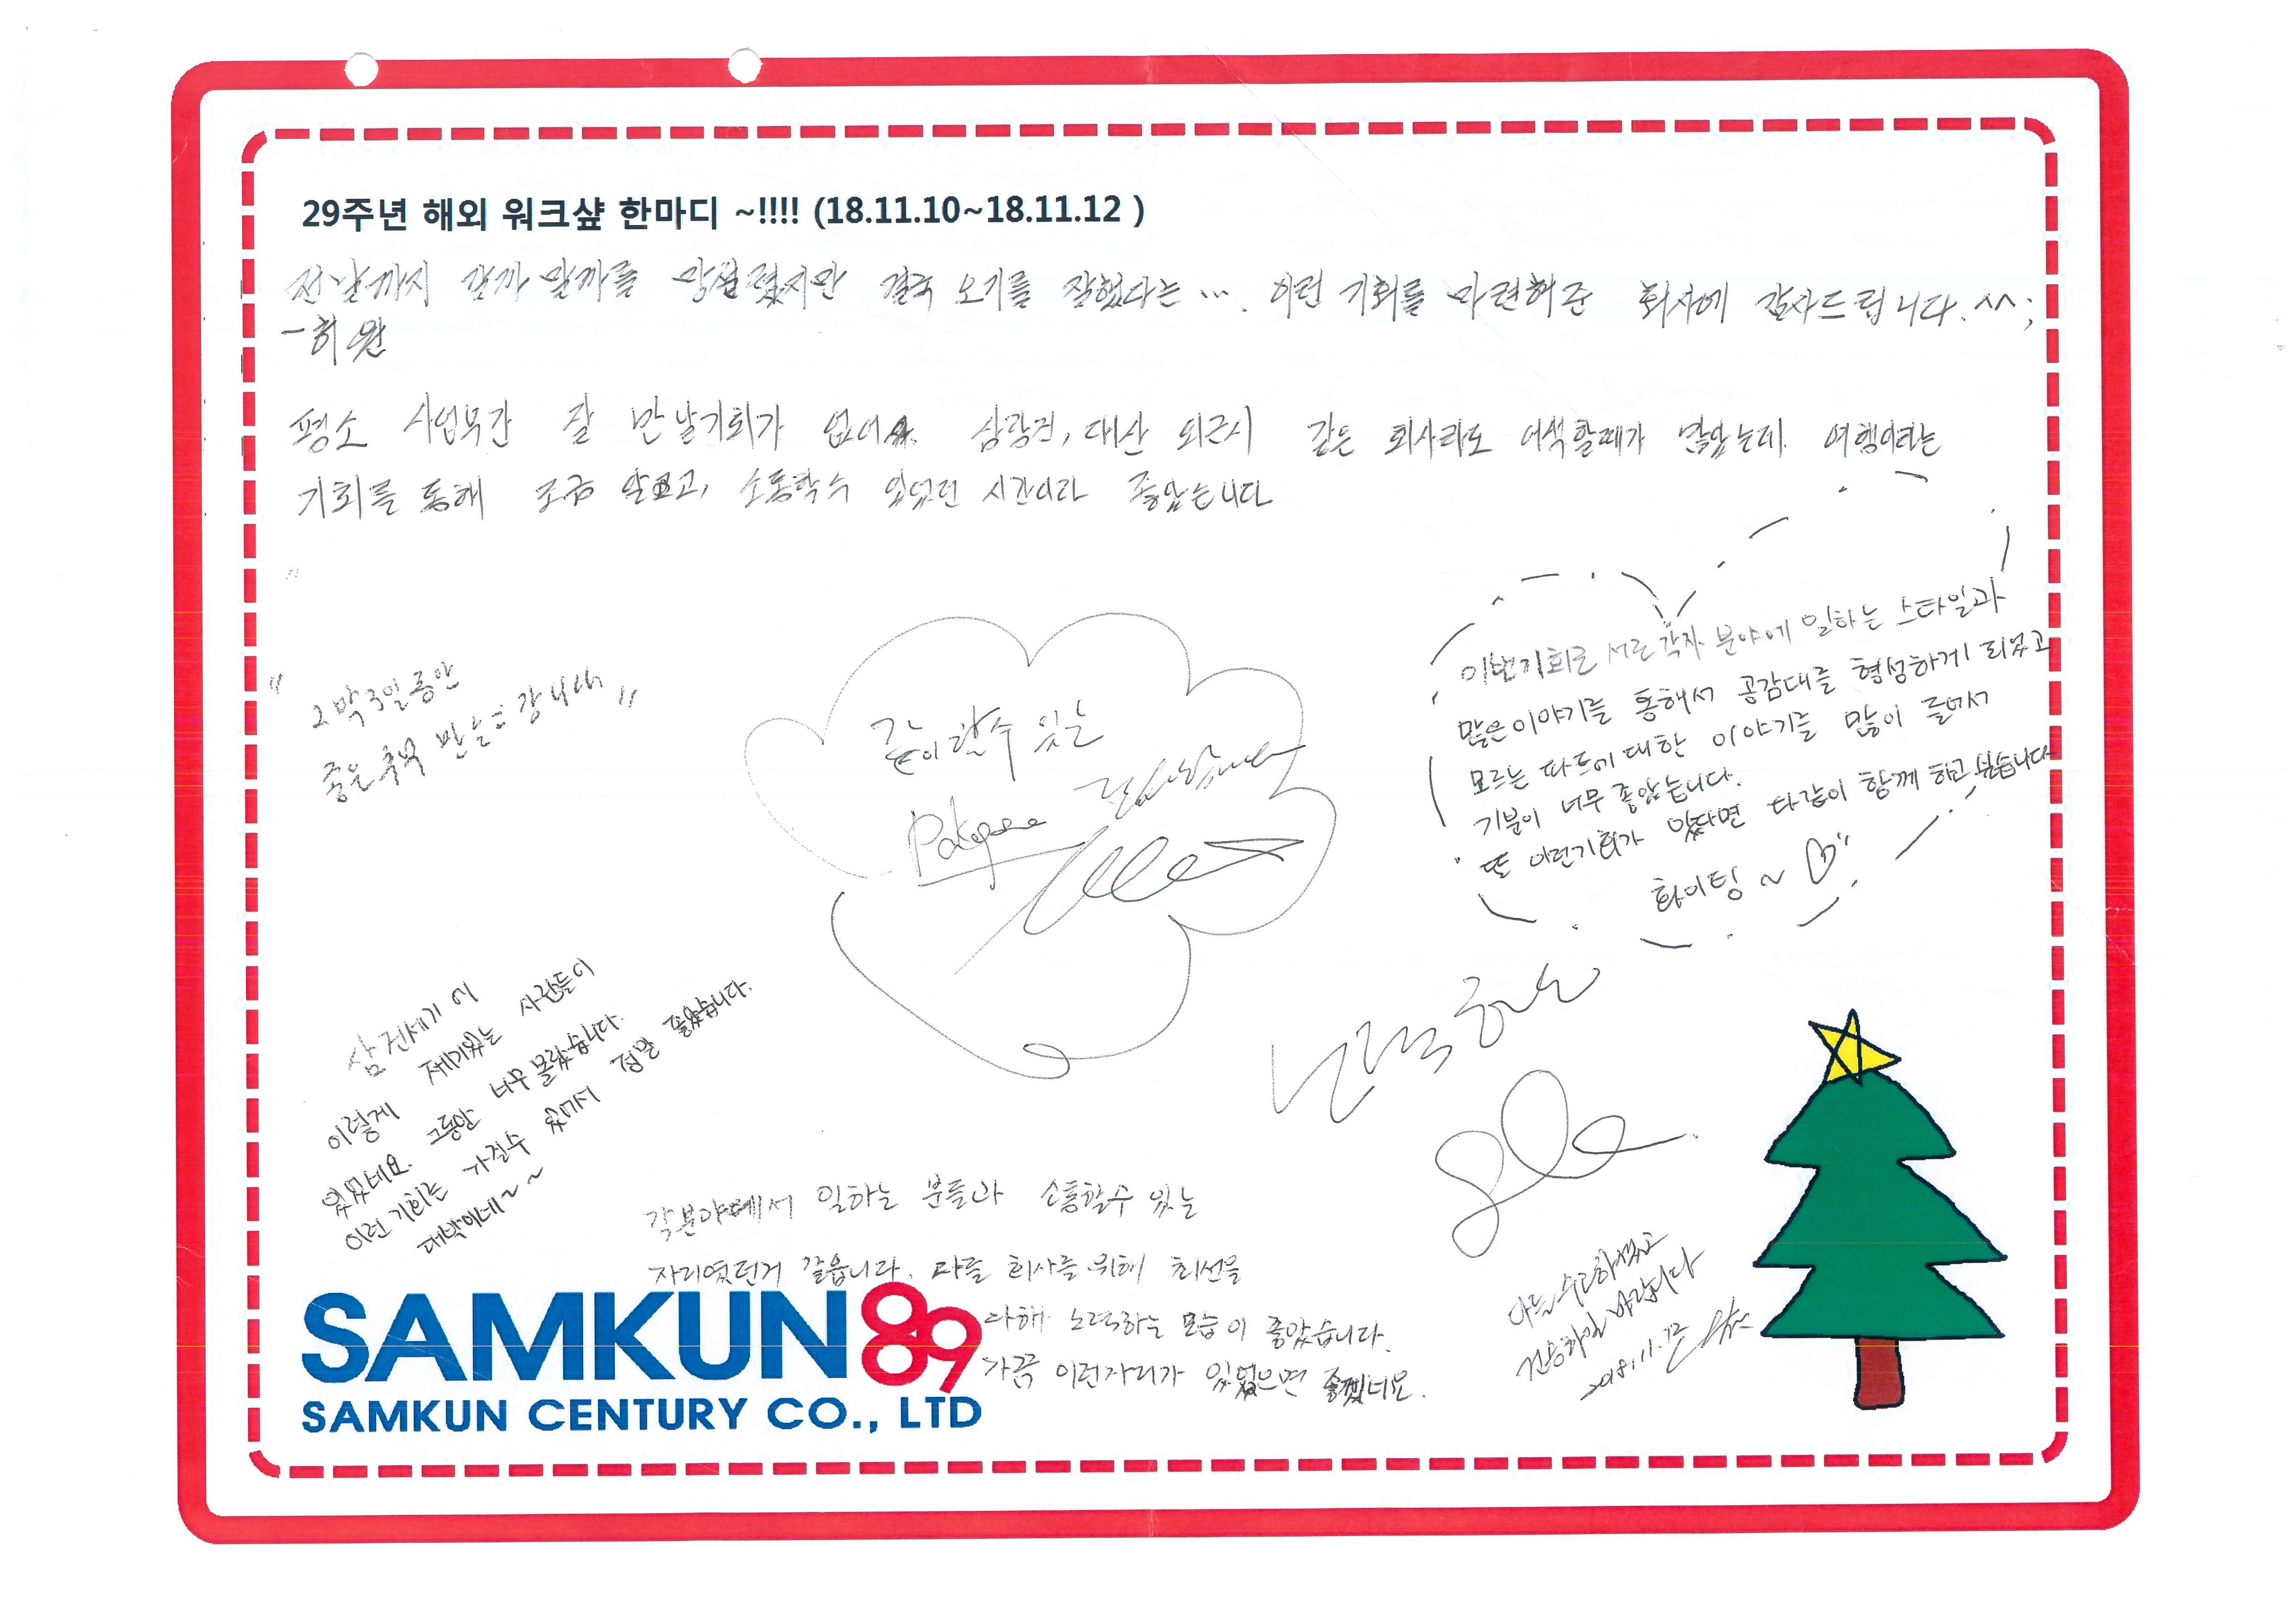 29주년 해외 워크샾 한마디 ~!!!! (18.11.10~18.11.12 )
전날까지 갈까 말까를 망설렸지만 결국 오기를 잘했다는 .... 이런 기회를 마련해준 회사에 감사드립니다. ^^;
- 희원
평소 사업부간 잘 만날기회가 없어서 삼랑진, 대산 외근시 같은 회사라도 어색할때가 많았는데 여행이라는
기회를 통해 조금 알고, 소통할수 있었던 시간이라 좋았습니다
이번기회로 서로 각자 분야에 일하는 스타일과
많은이야기를 통해서 공감대를 형성하게 되었고
모르는 파트에대한 이야기를 많이 들어서
기분이 너무 좋았습니다.
또 이런기회가 있다면 다같이 함께 하고 싶습니다
화이팅 ~ ♡
" 2박3일동안
좋은추억 만들고 갑니다 "
같이 할수 있는
삼건세기에
이렇게 재미있는 사람들이
있었네요. 그동안 너무 몰랐습니다.
이런 기회는 가질수 있어서 정말 좋았습니다.
대박이네~~
각분야에서 일하는 분들과 소통할수 있는
자리였던거 같읍니다. 다들 회사를 위해 최선을
다해 노력하는 모습이 좋았습니다.
가끔 이런자리가 있었으면 좋겠네요.
다들 수고하셨고
건승하길 바랍니다
2018.11.12
SAMKUN89
SAMKUN CENTURY CO., LTD